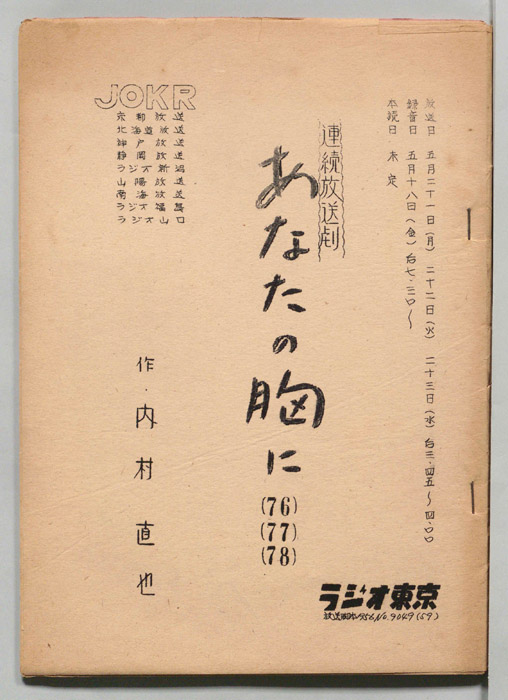 放送日 五月二十一日(月) 二十二日(火) 二十三日(水) 后三・四五〜四・〇〇
録音日 五月十八日(金)后七・三〇〜
本読日 未定
連続放送劇
あなたの胸に
(76)
(77)
(78)
作・内村直也
JOKR
放送
北海道放送
神戸放送
静岡放送
ラジオ新潟
山陽放送
南海放送
ラジオ
ラジオ山口
ラジオ東京
No.9049(59)